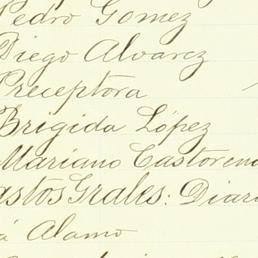 Pedro Gomez
Diego Alvarez
Preceptora
Brigida López
Mariano Castorena
Gastos Grales: Diari
á Alamo